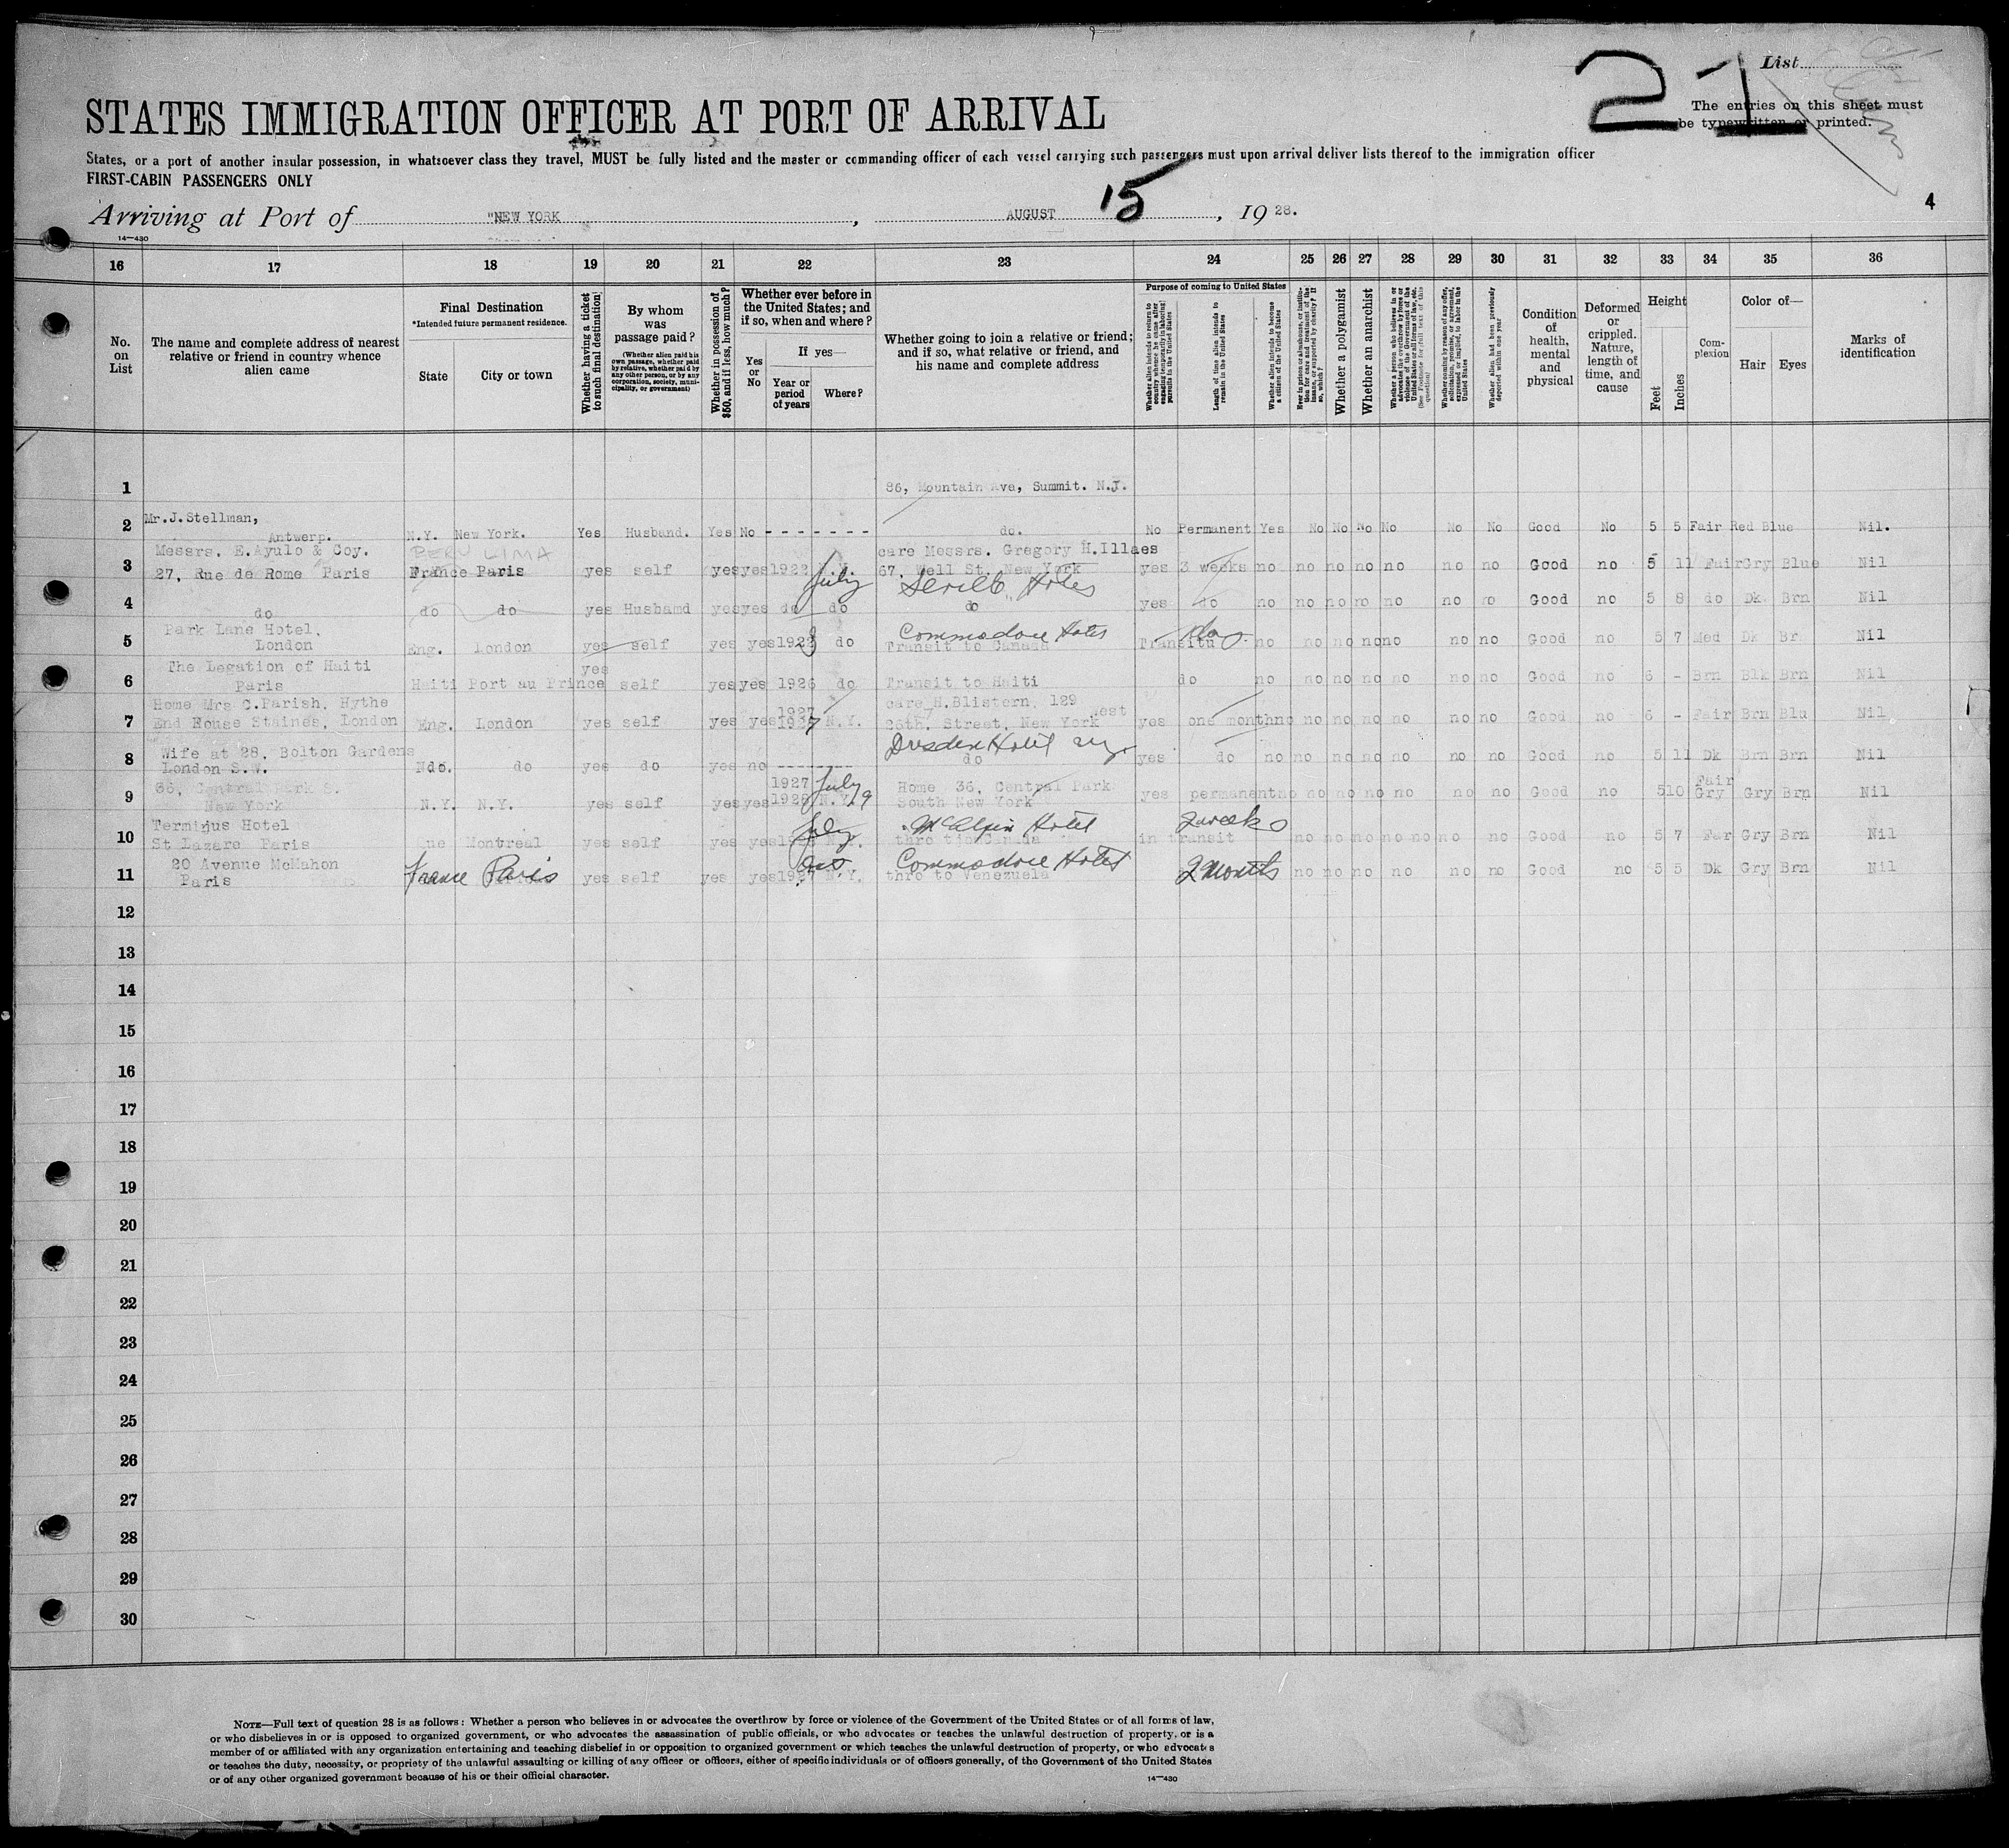 List
21
The entries on this sheet must
be typewritten or printed.
STATES IMMIGRATION OFFICER AT PORT OF ARRIVAL
States, or a port of another insular possession, in whatsoever class they travel, MUST be fully listed and the master or commanding officer of each vessel carrying such passengers must upon arrival deliver lists thereof to the immigration officer
FIRST-CABIN PASSENGERS ONLY
Arriving at Port of "NEW YORK, AUGUST 15, 1928.
4
14—430
16 17 18 19 20 21 22 23 24 25 26 27 28 29 30 31 32 33 34 35 36
No. on List
The name and complete address of nearest relative or friend in country whence alien came
Final Destination
*Intended future permanent residence.
State City or town
Whether having a ticket to such final destination
By whom was passage paid?
(Whether alien paid his own passage, whether paid by relative, whether paid by any other person, or by any corporation, society, municipality, or government)
Whether in possession of $50, and if less, how much?
Whether ever before in the United States; and if so, when and where?
Yes or No
If yes—
Year or period of years
Where?
Whether going to join a relative or friend; and if so, what relative or friend, and his name and complete address
Purpose of coming to United States
Whether alien intends to return to country whence he came after engaging temporarily in laboring pursuits in the United States
Length of time alien intends to remain in the United States
Whether alien intends to become a citizen of the United States
Ever in prison or almshouse, or institution for care and treatment of the insane, or supported by charity? If so, which?
Whether a polygamist
Whether an anarchist
Whether alien had been previously deported within one year
Condition of health, mental and physical
Deformed or crippled. Nature, length of time, and cause
Height
Feet Inches
Complexion
Color of—
Hair Eyes
Marks of identification
1 86, Mountain Ave, Summit. N.J.
Mr.J.Stellman,
2 Antwerp. N.Y. New York. Yes Husband. Yes No - - - - - - - do. No Permanent Yes No No No No No No Good No 5 5 Fair Red Blue Nil.
Messrs. E.Ayulo & Coy. PERU LIMA care Messrs. Gregory H.Illaes
3 27, Rue de Rome Paris France Paris yes self yes yes 1922 N.Y. July 67, Wall St. New York yes 3 weeks no no no no no no no Good no 5 11 Fair Gry Blue Nil
Hotel
4 do do do yes Husband yes yes do do do yes do no no no no no no no Good no 5 8 do Dk Brn Nil
Park Lane Hotel, Commodore Hotel
5 London Eng. London yes self yes yes do Transit to Canada Transit no no no no no no no Good no 5 7 Med Dk Br. Nil
The Legation of Haiti yes
6 Paris Haiti Port au Prince self yes yes 1926 do Transit to Haiti do no no no no no no no Good no 6 - Brn Blk Brn Nil
Home Mrs C.Parish, Hythe 1927 care H.Blistern, 129 West
7 End House Staines, London Eng. London yes self yes yes N.Y. 26th, Street, New York yes one month no no no no no no no Good no 6 - Fair Brn Blu Nil
Wife at 28, Bolton Gardens Dresden Hotel
8 London S.W. do. do yes do yes no -------- do yes do no no no no no no no Good no 5 11 Dk Brn Brn Nil
36, Central Park S. 1927 July Home 36, Central Park Fair
9 New York N.Y. N.Y. yes self yes yes 1928 N.Y. South New York yes permanent no no no no no no no Good no 5 10 Gry Gry Brn Nil
Terminus Hotel July McAlpin Hotel 2 weeks
10 St Lazare Paris Que Montreal yes self yes yes N.Y. in transit no no no no no no no Good no 5 7 Gry Brn Nil
20 Avenue McMahon Oct Commodore Hotel
11 Paris France Paris yes self yes yes 1927 N.Y. thro to Venezuela 2 months no no no no no no Good no 5 5 Dk Gry Brn Nil
12
13
14
15
16
17
18
19
20
21
22
23
24
25
26
27
28
29
30
NOTE—Full text of question 28 is as follows: Whether a person who believes in or advocates the overthrow by force or violence of the Government of the United States or of all forms of law,
or who disbelieves in or is opposed to organized government, or who advocates the assassination of public officials, or who advocates or teaches the unlawful destruction of property, or is a
member of or affiliated with any organization entertaining and teaching disbelief in or opposition to organized government or which teaches the unlawful destruction of property, or who advocates
or teaches the duty, necessity, or propriety of the unlawful assaulting or killing of any officer or officers, either of specific individuals or of officers generally, of the Government of the United States
or of any other organized government because of his or their official character.
14—430